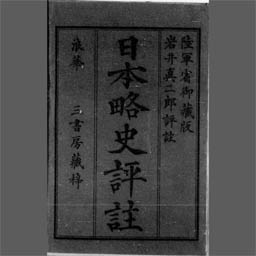 陸軍省御藏版
岩井真三郎評註
日本略史評註
浪華 三書房藏梓